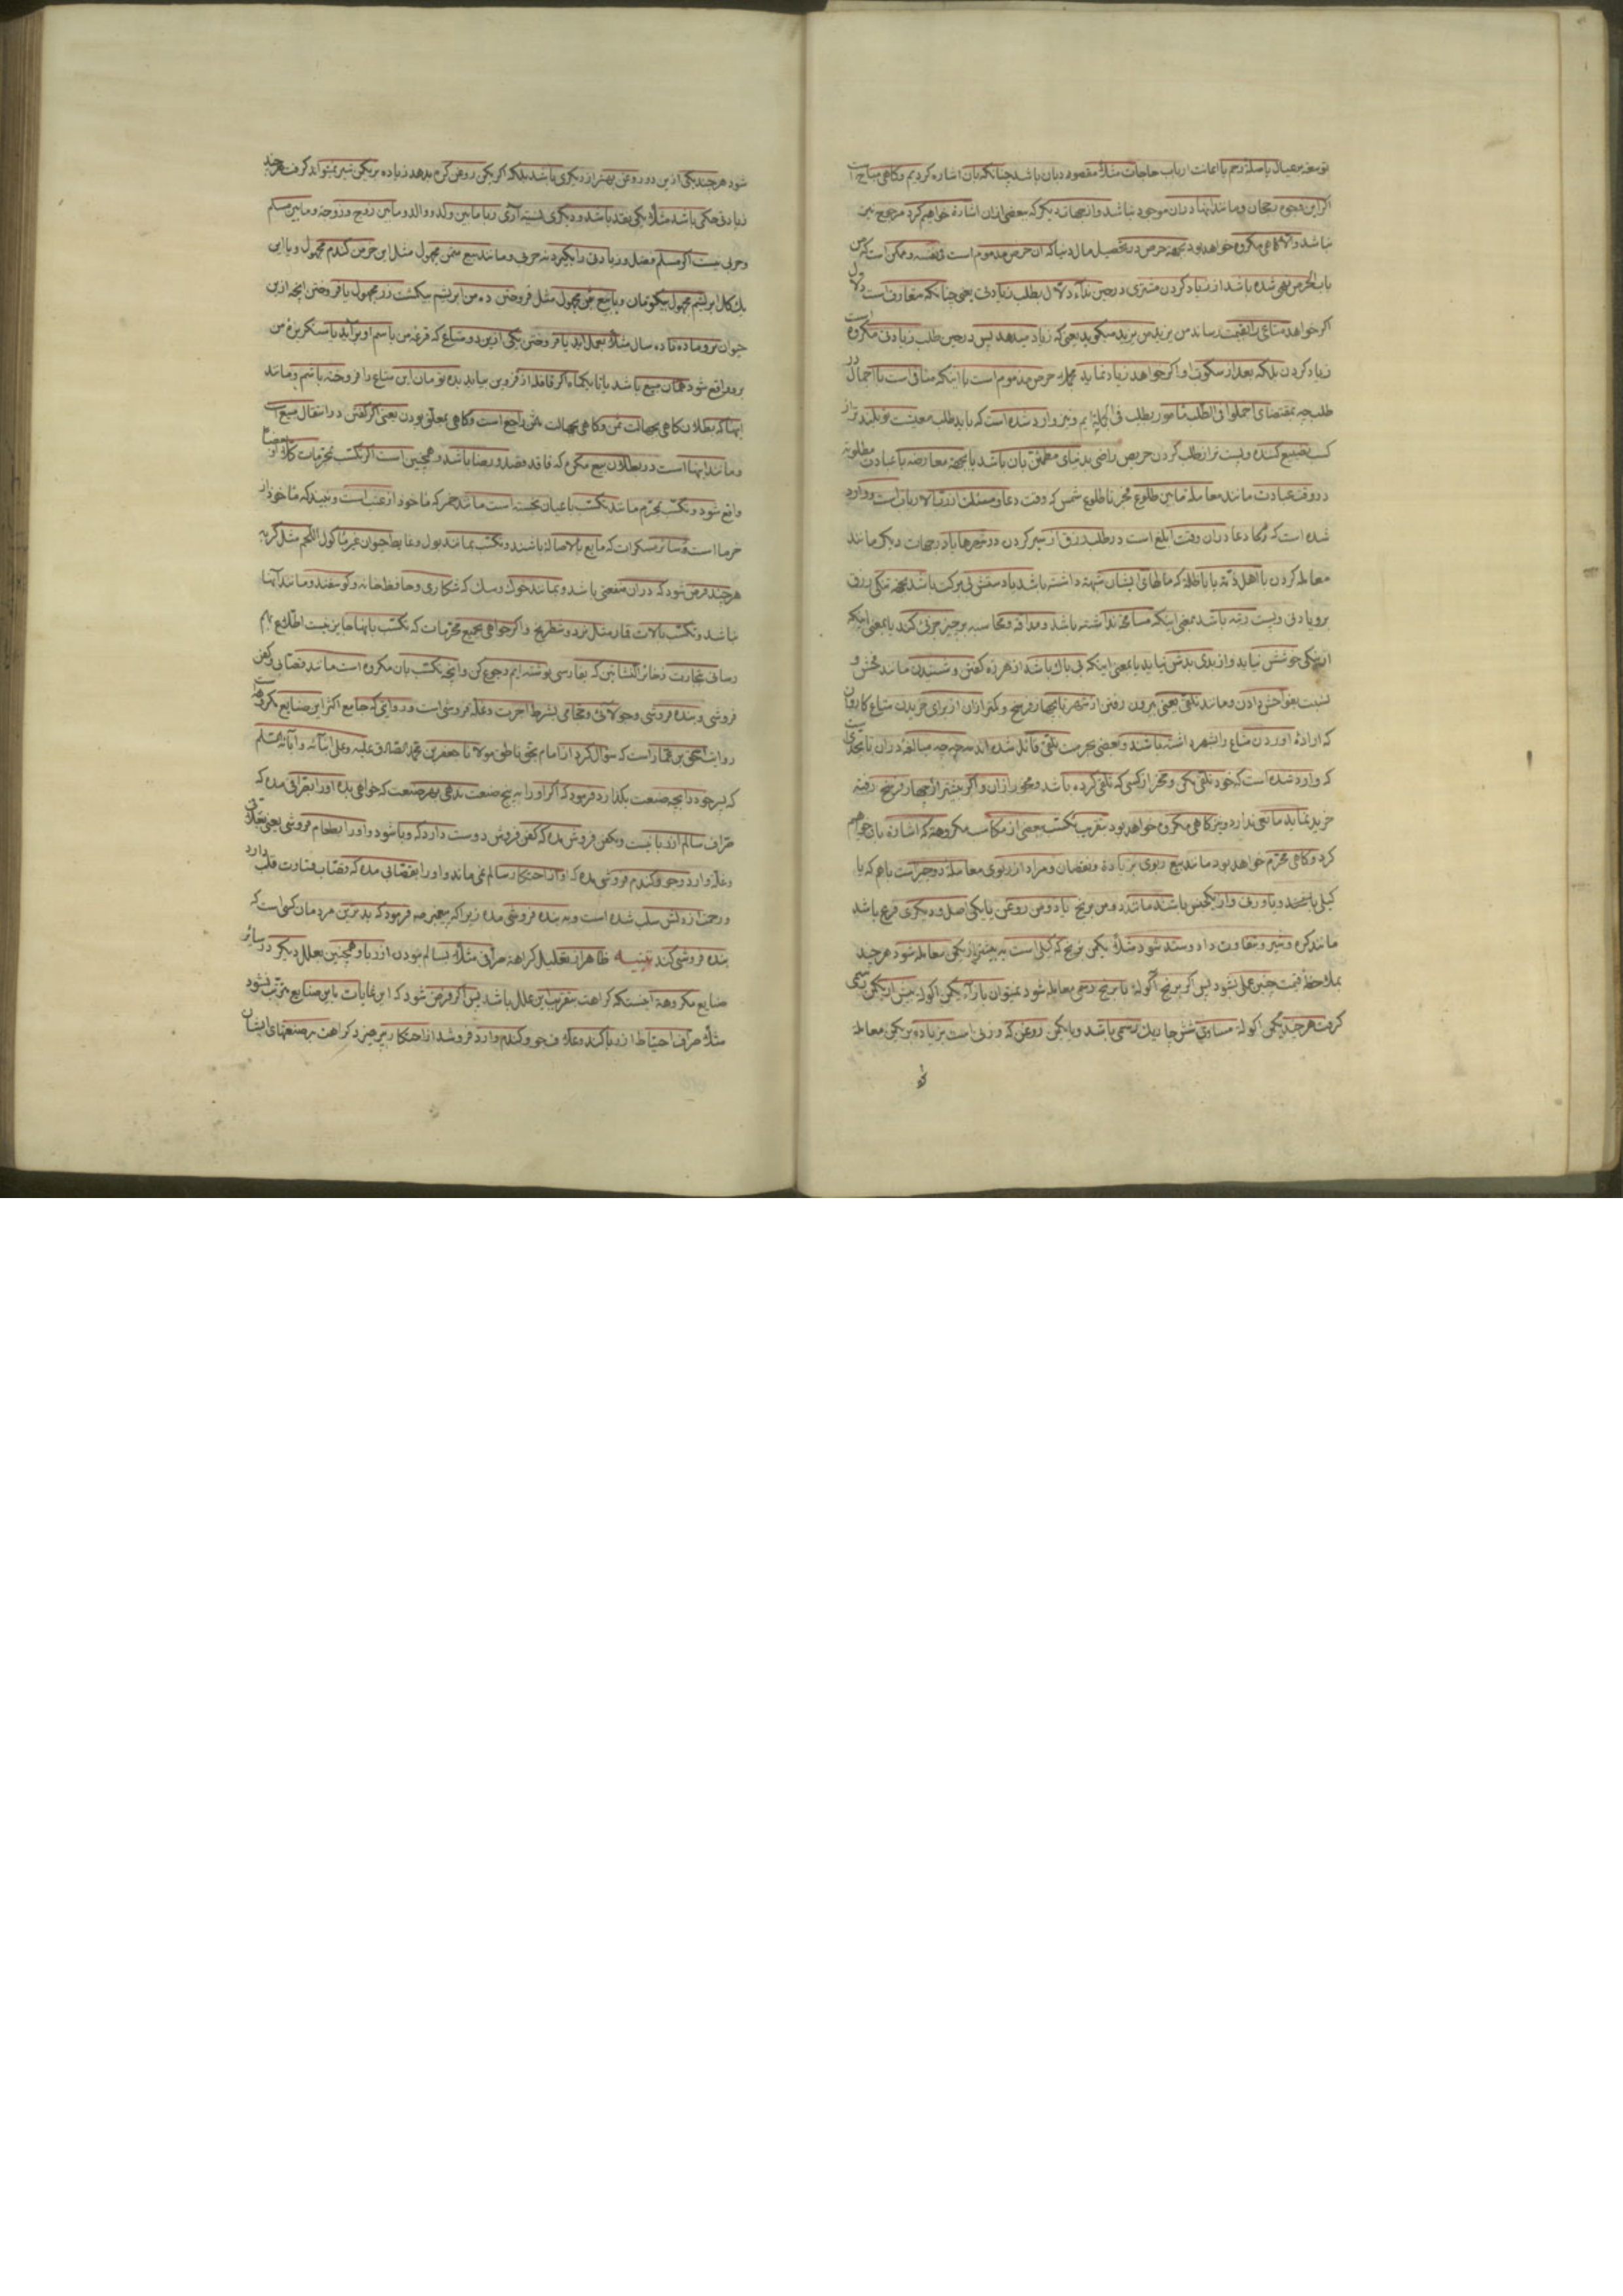 توسعه بر عیال یا صله رحم یا اعانت ارباب حاجات مثلا مقصود بان باشد چنانکه بان اشاره کردیم و کاهی مباح است
اکر این وجوه رجحان و مانند اینها دران موجود نباشد و از جهات دیکر که ببعضی ازان اشاره خواهیم کرد مرجوح نیز
نباشد والا کاهی مکروه خواهد بود بجهة حرص در تحصیل مال دنیا که ان حرص مذموم است فی نفسه و ممکن است که من
باب الحرص نهی شده باشد از زیاد کردن مشتری در حین نداء دلال بطلب زیادتی یعنی چنانکه متعارف است دلال
اکر خواهد متاعی را بقیمت رساند من یزید من یزید میکوید یعنی که زیاد میدهد پس در حین طلب زیادتی مکروه است
زیاد کردن بلکه بعد از سکوت او اکر خواهد زیاد نماید حرص مذموم است با اینکه منافی است با اجمال در
طلب چه بمقتضای اجملوا فی الطلب مامور بطلب فی الجمله ایم و نیز وارد شده است که باید طلب معیشت تو بلندتر از
کسب تضییع کننده و پست تر از طلب کردن حریص راضی بدنیای مطمئن بان باشد یا بجهة معارضه با عبادت مطلوبه
در وقت عبادت مانند معامله مابین طلوع فجر تا طلوع شمس که وقت دعا و مسئلت از رب الارباب است و وارد
شده است که دعا دران وقت ابلغ است در طلب رزق از سیر کردن در و یا در جهات دیکر مانند
معامله کردن با اهل ذمه یا با ظلمه که مالهای ایشان شبهه داشته باشد یا دستش بی برکت باشد بجهة تنکی رزق
برو یا دنی و پست رتبه باشد بمعنی اینکه مسامحه نداشته باشد و مداقه و محاسبه بر چیز جزئی کند یا بمعنی اینکه
از نیکی خوشش نیاید و از بدی بدش نیاید یا بمعنی اینکه بی باک باشد از هرزه کفتن و شنیدن مانند فحش و
نسبت بفواحش دادن و مانند تلقی یعنی بیرون رفتن از شهر تا چهار فرسخ و کمتر ازان از برای خریدن متاع کاروان
که اراده اوردن متاع را بشهر داشته باشند و بعضی بحرمت تلقی قائل شده اند چه مبالغه دران تا بحدی است
که وارد شده است که خود تلقی مکن و مخر از کسی که تلقی کرده باشد و مخور ازان و اکر بیشتر از چهار فرسخ رفته
خرید نماید مانعی ندارد و نیز کاهی مکروه خواهد بود بتقریب تکسب ببعضی از مکاسب مکروهه که اشاره بان خواهیم
کرد و کاهی محرم خواهد بود مانند بیع ربوی بزیاده و نقصان و مراد از ربوی معامله دو جنس است باهم که یا
کیلی باشند و یا وزنی و از یکجنس باشند مانند دو من برنج یا دو من روغن یا یکی اصل و دیکری فرع باشد
مانند کره و شیر و بتفاوت داد و ستد شود مثلا یکمن برنج که کیلی است به بیشتر از یکمن معامله شود هر چند
بملاحظه قیمت چنین عملی بشود پس اکر برنج اکوله با برنج رسمی معامله شود نمیتوان بازاء یکمن اکوله بیش از یکمن رسمی
کرفت هر چند یکمن اکوله مساوی شش چاریک رسمی باشد و یا یکمن روغن که وزنی است بزیاده بر یکمن معامله
شود هر چند یکی ازین دو روغن بهتر از دیکری باشد بلکه اکر یکمن روغن کرم بدهد زیاده بر یکمن شیر نمیتواند کرفت هر چند
زیادتی حکمی باشد مثلا یکی نقد باشد و دیکری نسیه آری ربا مابین ولد و والد و مابین زوج و زوجه و مابین مسلم
و حربی نیست اکر مسلم فضل و زیادتی را بکیرد نه حربی و مانند بیع بثمن مجهول مثل این خرمن کندم مجهول و یا این
یک کلاف ابریشم مجهول بیکتومان و یا بیع بثمن مجهول مثل فروختن ده من ابریشم بیکمشت زر مجهول یا فروختن انچه ازین
حیوان نر و ماده تا ده سال مثلا بعمل اید یا فروختن یکی ازین دو متاع که قرعه من باسم او براید یا سنکریزه من
برو واقع شود همان مبیع باشد یا تا یکماه اکر قافله از قزوین بیاید بده تومان این متاع را فروخته باشم و مانند
اینها که بطلان کاهی بجهالت ثمن و کاهی بجهالت مثمن راجع است و کاهی بمعلق بودن یعنی اکر کفتن در انتقال مبیع است
و مانند اینها است در بطلان بیع مکره که فاقد قصد و رضا باشد و همچنین است اکر تکسب بمحرمات کلا او بعضا
واقع شود و تکسب بمحرم مانند تکسب باعیان نجسه است مانند خمر که ماخوذ از عنب است و نبید که ماخوذ از
خرما است و سائر مسکرات که مایع بالاصاله باشند و تکسب بمانند بول و غایط حیوان غیر ماکول اللحم مثل کربه
هر چند فرض شود که دران منفعتی باشد و بمانند خوک و سک که شکاری و حافظ خانه و کوسفند و مانند آنها
نباشد و تکسب بالات قمار مثل نرد و شطرنج و اکر خواهی بجمیع محرمات که تکسب بانها جایز نیست اطلاع بهم
رسانی بتجارت ذخائر النشاتین که بفارسی نوشته ایم رجوع کن و انچه تکسب بان مکروه است مانند قصابی و کفن
فروشی و بنده فروشی و جولائی و حجامی بشرط اجرت و غله فروشی است و روایتی که جامع اکثر این صنایع مکروهه است
روایت اسحق بن عمار است که سؤال کرد از امام بحق ناطق مولانا جعفر بن محمد الصادق علیه و علی ابنائه و آبائه السلم
که پسر خود را بچه صنعت بکذارد فرمود که اکر او را به پنج صنعت ندهی بهر صنعت که خواهی بده او را بصرافی مده که
صراف سالم از ربا نیست و بکفن فروش مده که کفن فروش دوست دارد که وبا شود و او را بطعام فروشی یعنی بعلافی
و غله و ارد و جو و کندم فروشی مده که او از احتکار سالم نمی ماند و او را بقصابی مده که قصاب قساوت قلب دارد
و رحمت از دلش سلب شده است و به بنده فروشی مده زیرا که پیغمبر ص فرمود که بدترین مردمان کسی است که
بنده فروشی کند تنبیه ظاهر از تعلیل کراهة صرافی مثلا به سالم نبودن از ربا و همچنین بعلل دیکر در سائر
صنایع مکروهه آنست که کراهت بتقریب این علل باشد پس اکر فرض شود که این غایات باین صنایع مترتب نشود
مثلا صراف احتیاط از ربا کند و علاف جو و کندم و ارد فروشد از احتکار بپرهیزد کراهت بر صنعتهای ایشان